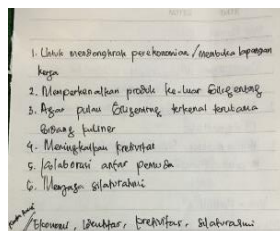 1. Untuk mendongkrak perekonomian / membuka lapangan
kerja
2. Memperkenalkan produk ke-luar Giligenteng
3. Agar pulau Giligenteng terkenal terutama
bidang kuliner
4. Meningkatkan kreativitas
5. Kolaborasi antar pemuda
6. Menjaga silaturahmi
Ekonomi, identitas, kreativitas, silaturahmi